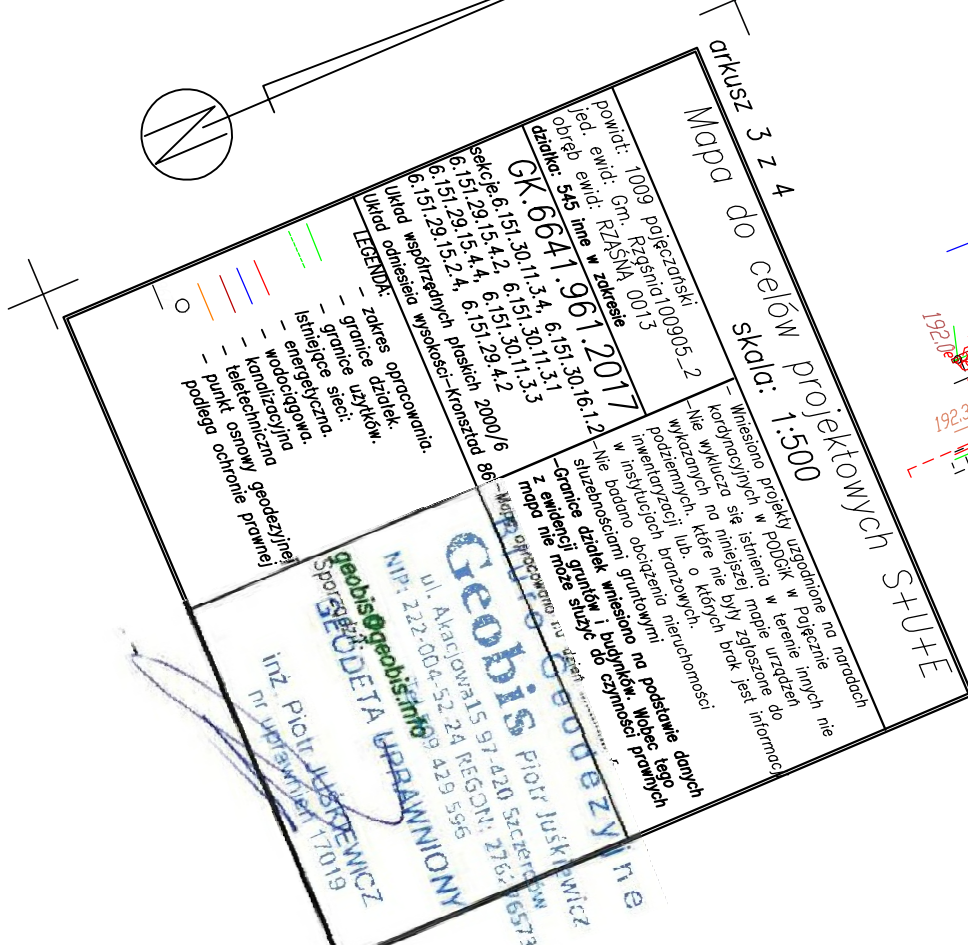 arkusz 3 z 4
Mapa do celów projektowych S+U+E
skala: 1:500
powiat: 1009 pajęczański
jed. ewid: Gm. Rząśnia100905_2
obręb ewid: RZĄŚNA 0013
działka: 545 inne w zakresie
GK.6641.961.2017
sekcje.6.151.30.11.3.4, 6.151.30.16.1.2
6.151.29.15.4.2, 6.151.30.11.3.1
6.151.29.15.4.4, 6.151.30.11.3.3
6.151.29.15.2.4, 6.151.29.4.2
Układ współrzędnych płaskich 2000/6
Układ odniesieia wysokości-Kronsztad 86
LEGENDA:
- zakres opracowania.
- granice działek.
- granice użytków.
Istniejące sieci:
- energetyczna.
- wodociągowa.
- kanalizacyjna
- teletechniczna
- punkt osnowy geodezyjnej
podlega ochronie prawnej
- Wniesiono projekty uzgodnione na naradach
kordynacyjnych w PODGiK w Pajęcznie
-Nie wyklucza się istnienia w terenie innych nie
wykazanych na niniejszej mapie urządzeń
podziemnych, które nie były zgłoszone do
inwentaryzacji lub. o których brak jest informacji
w instytucjach branżowych.
-Nie badano obciążenia nieruchomości
służebnościami gruntowymi
-Granice działek wniesiono na podstawie danych
z ewidencji gruntów i budynków. Wobec tego
mapa nie może służyć do czynności prawnych
-Mapę opracowano na dzień
Biuro Geodezyjne
Geobis Piotr Juśkiewicz
ul. Akacjowa15 97-420 Szczerców
NIP: 222-004-52-24 REGON:
429 596
geobis@geobis.info
Sporządził:
GEODETA UPRAWNIONY
inż. Piotr JUŚKIEWICZ
nr uprawnień 17019
192.0
192.3